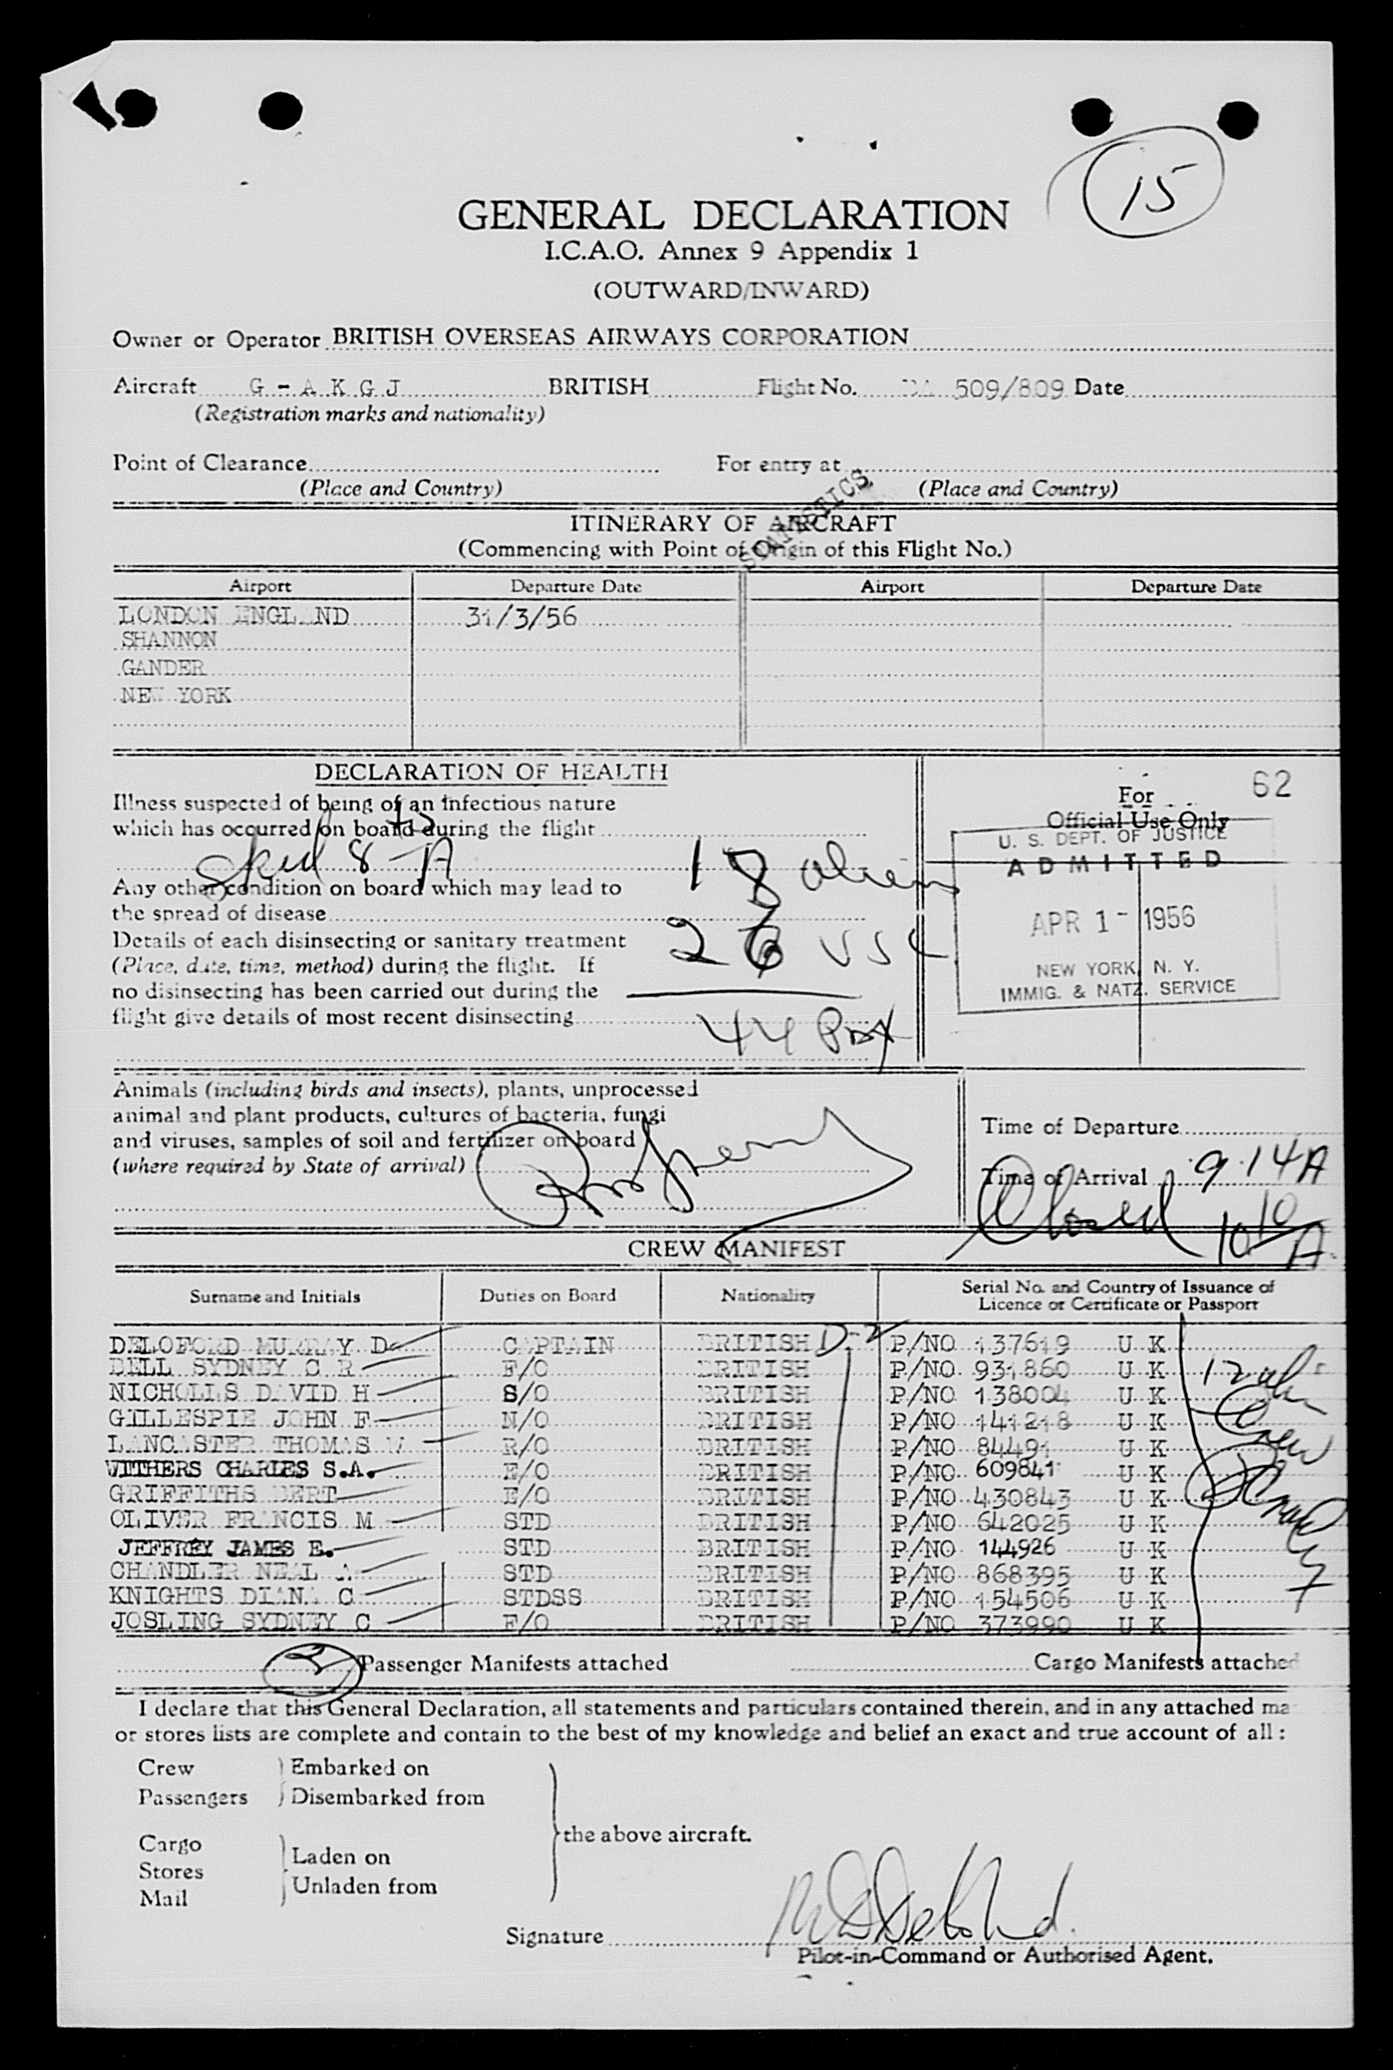 15
GENERAL DECLARATION
I.C.A.O. Annex 9 Appendix 1
(OUTWARD/INWARD)
Owner or Operator BRITISH OVERSEAS AIRWAYS CORPORATION
Aircraft G - A K G J BRITISH Flight No. BA 509/809 Date
(Registration marks and nationality)
Point of Clearance For entry at
(Place and Country) (Place and Country)
STATISTICS
ITINERARY OF AIRCRAFT
(Commencing with Point of Origin of this Flight No.)
Airport Departure Date Airport Departure Date
LONDON ENGLAND 31/3/56
SHANNON
GANDER
NEW YORK
DECLARATION OF HEALTH
Illness suspected of being of an infectious nature
which has occurred on board during the flight
Sked 8 15 A
Any other condition on board which may lead to
the spread of disease
Details of each disinsecting or sanitary treatment
(Place, date, time, method) during the flight. If
no disinsecting has been carried out during the
flight give details of most recent disinsecting
18 aliens
26 USC
44 Pax
For 62
Official Use Only
U. S. DEPT. OF JUSTICE
ADMITTED
APR 1 - 1956
NEW YORK, N. Y.
IMMIG. & NATZ. SERVICE
Animals (including birds and insects), plants, unprocessed
animal and plant products, cultures of bacteria, fungi
and viruses, samples of soil and fertilizer on board
(where required by State of arrival)
Time of Departure
Time of Arrival 9:14A
Closed 10 10 A.
CREW MANIFEST
Surname and Initials Duties on Board Nationality Serial No. and Country of Issuance of Licence or Certificate or Passport
DELOFORD MURRAY D CAPTAIN BRITISH D-2 P/NO 137619 U K
BELL SYDNEY C R F/O BRITISH P/NO 931860 U K
NICHOLLS DAVID H S/O BRITISH P/NO 138004 U K
GILLESPIE JOHN F N/O BRITISH P/NO 141218 U K
LANCASTER THOMAS W R/O BRITISH P/NO 84491 U K
WITHERS CHARLES S.A. E/O BRITISH P/NO 609841 U K
GRIFFITHS BERT E/O BRITISH P/NO 430843 U K
OLIVER FRANCIS M STD BRITISH P/NO 642025 U K
JEFFREY JAMES E. STD BRITISH P/NO 144926 U K
CHANDLER NEAL A STD BRITISH P/NO 868395 U K
KNIGHTS DIANA C STDSS BRITISH P/NO 154506 U K
JOSLING SYDNEY C F/O BRITISH P/NO 373990 U K
12
Crew
2 Passenger Manifests attached Cargo Manifests attached
I declare that this General Declaration, all statements and particulars contained therein, and in any attached ma
or stores lists are complete and contain to the best of my knowledge and belief an exact and true account of all :
Crew Embarked on
Passengers Disembarked from
the above aircraft.
Cargo Laden on
Stores Unladen from
Mail
Signature
Pilot-in-Command or Authorised Agent.